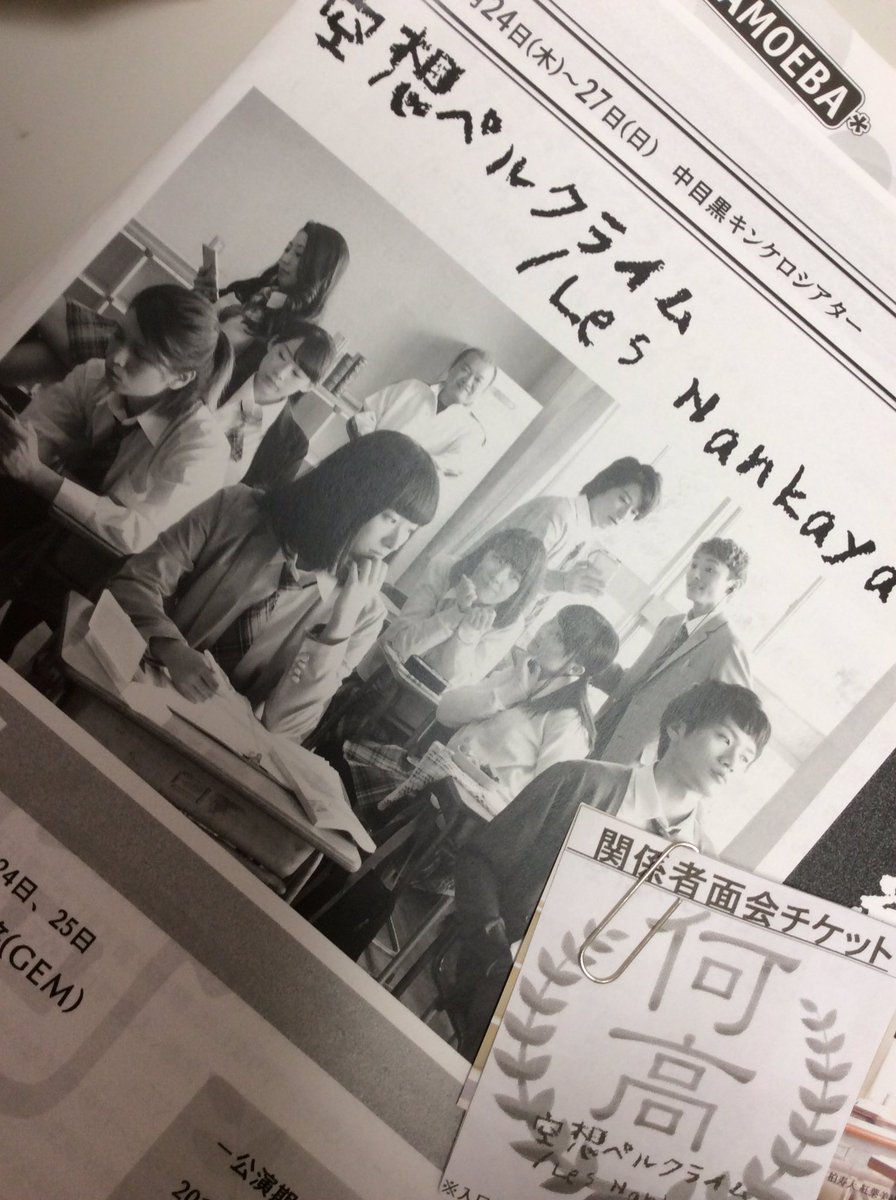 AMOEBA*
24日(木)～27日(日) 中目黒キンケロシアター
空想ペルクライム
/Les Nankaya
24日、25日
(GEM)
関係者面会チケット
何高
空想ペルクライム
/Les Nan
※入
－公演期
20
柏寿人